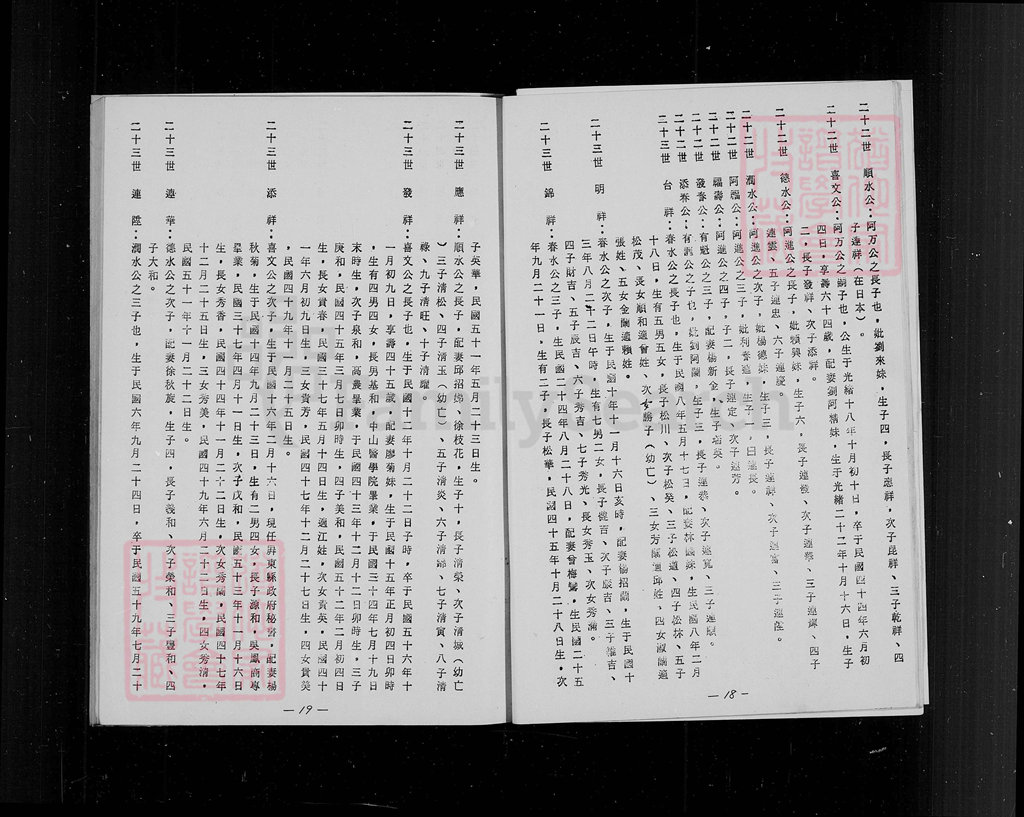 二十二世　順水公：阿万公之長子也，妣劉來妹，生子四，長子惠祥，次子昆祥、三子乾祥、四
子逢祥（在日本）。
二十二世　喜文公：阿万公之嗣子也，公生于光緒十八年十月初十日，卒于民國四十四年六月初
四日，享壽六十四歲，配妻劉阿精妹，生于光緒二十二年十月十六日，生子
二，長子發祥、次子添祥。
二十二世　德水公：阿進公之長子，妣賴興妹，生子六，長子連發、次子連華、三子連輝、四子
連雲、五子連忠、六子連慶。
二十二世　潤水公：阿進公之次子，妣楊德妹，生子三，長子連輝、次子連富、三子連陞。
二十二世　阿福公：阿進公之三子，妣利番進，生子一，曰連長。
二十二世　福壽公：阿進公之四子，子二，長子連定、次子連芳。
二十二世　發春公：有魁公之三子，配妻楊新金、生子瑞英。
二十二世　添春公：有魁公之子也，妣劉阿蘭，生子三，長子連恭、次子連寬、三子連順。
二十三世　台　祥：春水公之長子也，生于民國八年五月十七日，配妻林儀妹，生民國八年二月
十八日，生有五男五女，長子松川、次子松癸、三子松道、四子松林、五子
松茂、長女順和適曾姓、次女勝子（幼亡）、三女芳蘭適邱姓、四女淑蘭適
張姓、五女金蘭適賴姓。
二十三世　明　祥：春水公之次子，生于民國十年十一月十六日亥時，配妻楊招蘭，生于民國十
三年八月二十二日午時，生有七男二女，長子龍吉、次子辰吉、三子福吉、
四子財吉、五子辰吉、六子秀吉、七子秀光、長女秀玉、次女秀滿。
二十三世　錦　祥：春水公之三子，生民國二十四年八月二十八日，配妻曾梅鸞，生民國二十五
年九月二十一日，生有二子，長子松華，民國四十五年十月二十八日生，次
—18—
子英華，民國五十一年五月二十三日生。
二十三世　應　祥：順水公之長子，配妻邱招娣、徐枝花，生子十，長子清榮、次子清城（幼亡
）三子清松、四子清玉（幼亡）、五子清炎、六子清錦、七子清寅、八子清
祿、九子清旺、十子清曜。
二十三世　發　祥：喜文公之長子也，生于民國十二年十月二十二日子時，卒于民國五十六年十
一月初九日，享壽四十五歲，配妻廖菊妹，生于民國十五年正月初四日卯時
，生有四男四女，長男基和，中山醫學院畢業，于民國三十四年七月十九日
末時生，次子泉和，高農畢業，于民國四十三年十二月十二日卯時生，三子
庚和，民國四十五年三月七日卯時生，四子美和，民國五十二年二月初四日
生，長女貴春，民國三十七年五月十四日生，適江姓，次女貴英，民國四十
一年六月初九日生，三女貴芳，民國四十七年十二月二十七日生，四女貴美
，民國四十九年十一月二十五日生。
二十三世　添　祥：喜文公之次子，生于民國十六年二月十六日，現任屏東縣政府秘書，配妻楊
秋菊，生于民國十四年九月二十三日，生有二男四女，長子源和，吳鳳商專
畢業，民國三十七年四月十一日生，次子茂和，民國五十三年十一月十六日
生，長女秀香，民國四十四年十一月二十二日生，次女秀蘭，民國四十七年
十二月二十五日生，三女秀美，民國四十九年六月二十二日生，四女秀清，
民國五十一年十一月二十二日生。
二十三世　連　華：德水公之次子，配妻徐秋旋，生子四，長子義和、次子榮和、三子鼎和、四
子大和。
二十三世　連　陞：潤水公之三子也，生于民國六年九月二十四日，卒于民國五十九年七月二十
—19—